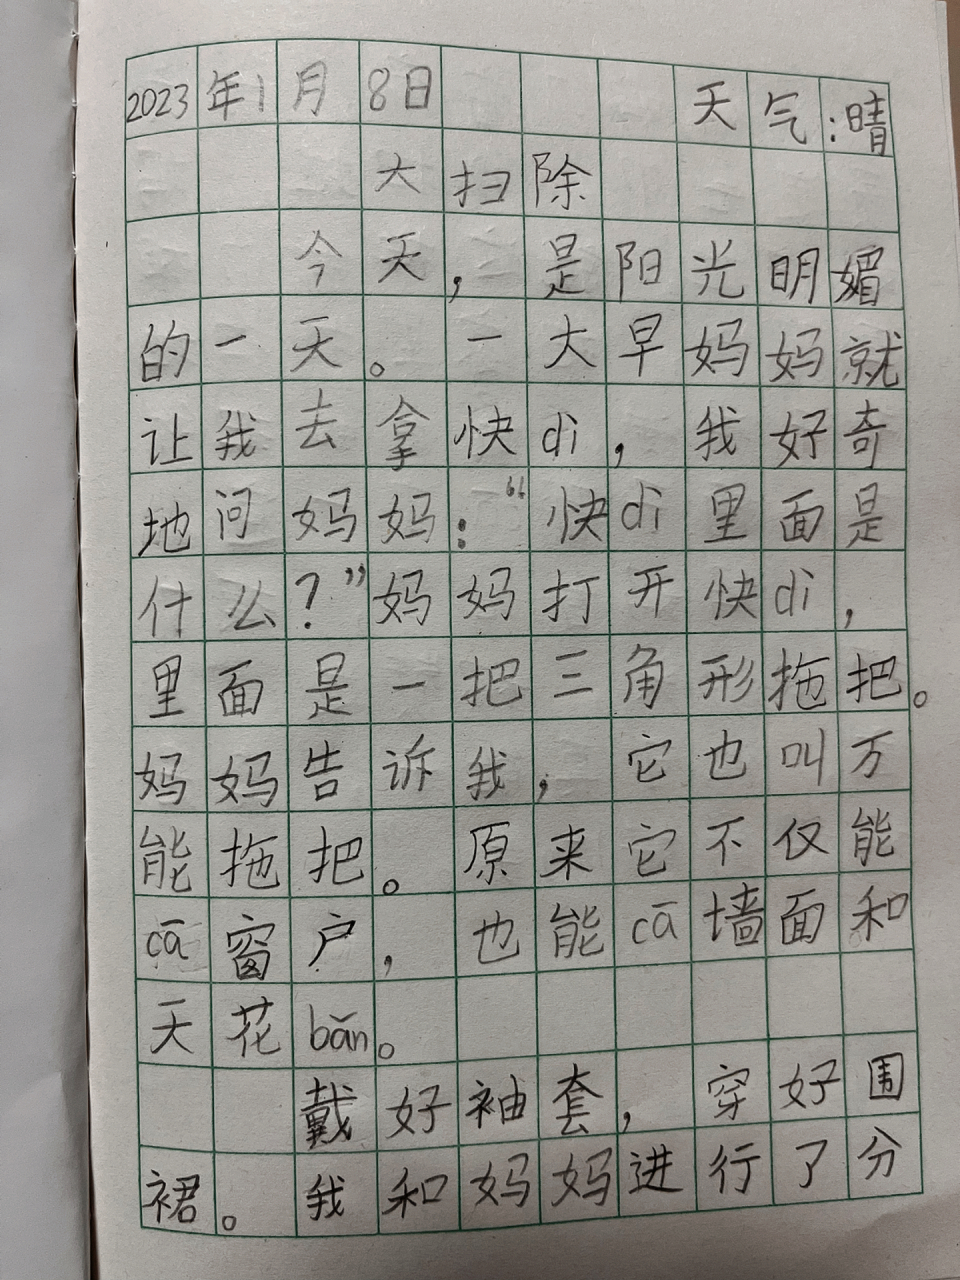 2023年1月8日 天气:晴
大扫除
今天，是阳光明媚
的一天。一大早妈妈就
让我去拿快di，我好奇
地问妈妈：“快di里面是
什么？”妈妈打开快di，
里面是一把三角形拖把。
妈妈告诉我，它也叫万
能拖把。原来它不仅能
cā窗户，也能cā墙面和
天花bǎn。
戴好袖套，穿好围
裙。我和妈妈进行了分